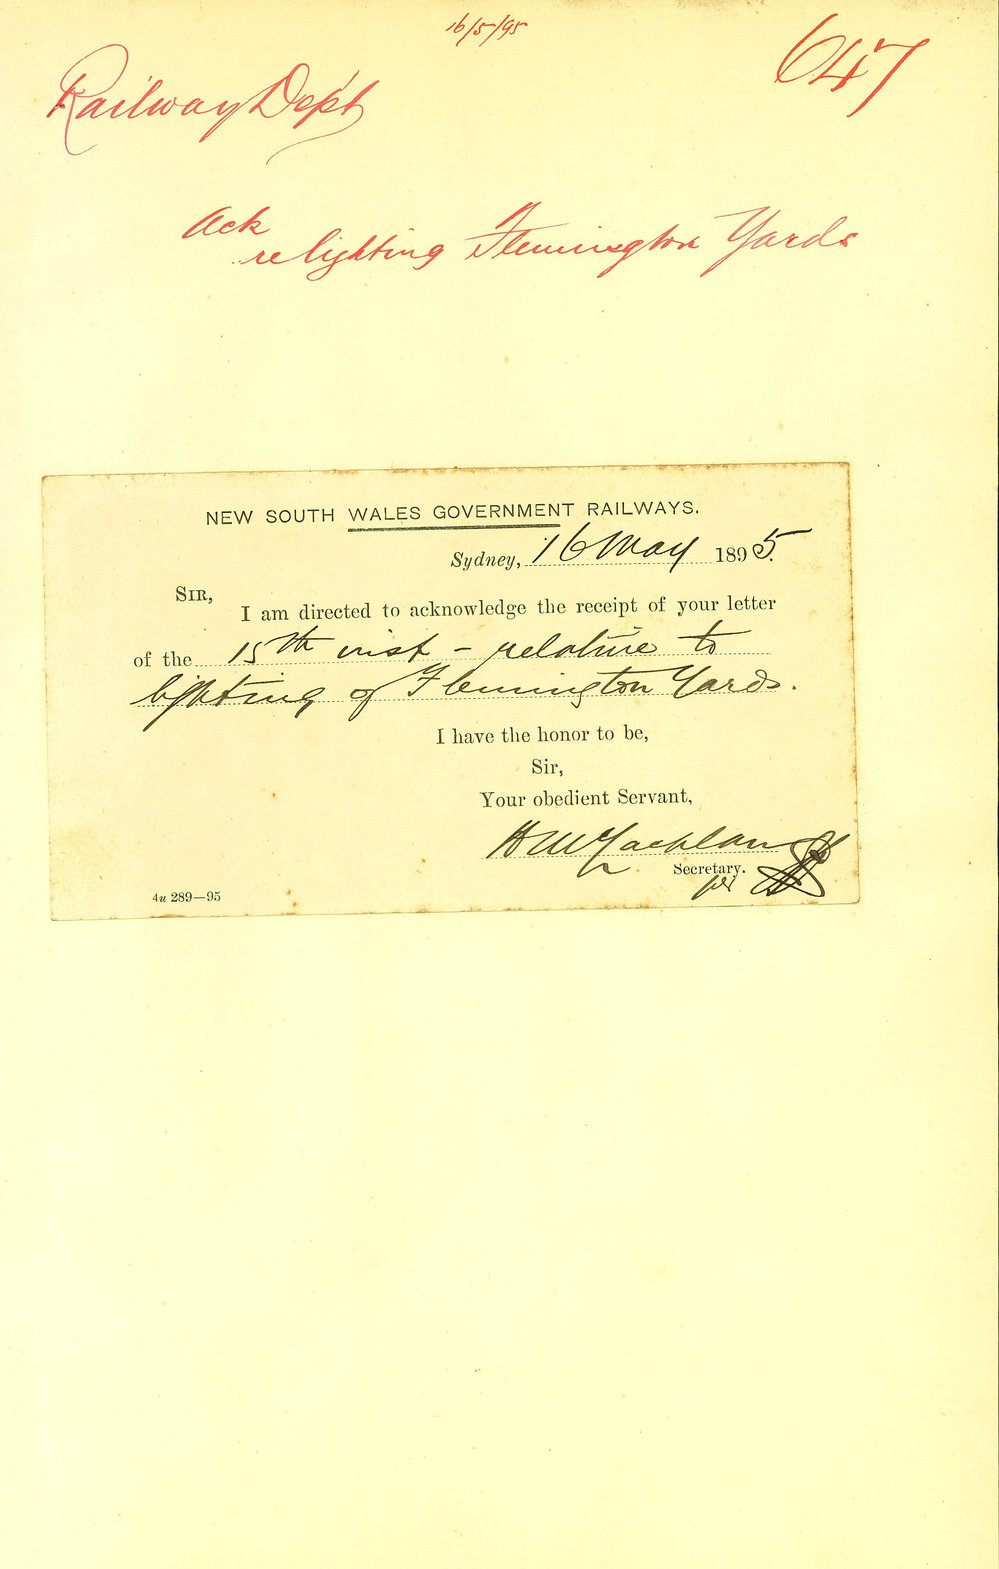 16/5/95
647
Railway Dep't
Ack
re lighting Flemington Yards
NEW SOUTH WALES GOVERNMENT RAILWAYS.
Sydney, 16 May 1895.
SIR,
I am directed to acknowledge the receipt of your letter
of the 15th inst – relative to
lighting of Flemington Yards.
I have the honor to be,
Sir,
Your obedient Servant,
H McLachlan
Secretary.
per
4u 289—95